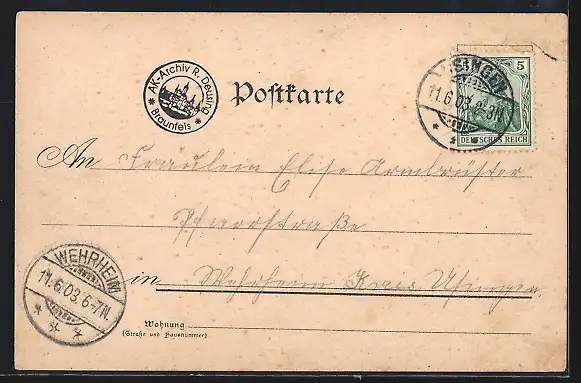 AK-Archiv R. Deusing
* Braunfels *
Postkarte
USINGEN
11.6.03.2-3N.
5
DEUTSCHES REICH
An Fräulein Elise Armbrüster
Pfarrstraße
in Wehrheim Kreis Usingen
WEHRHEIM
11.6.03.6-7N.
Wohnung
(Straße und Hausnummer)